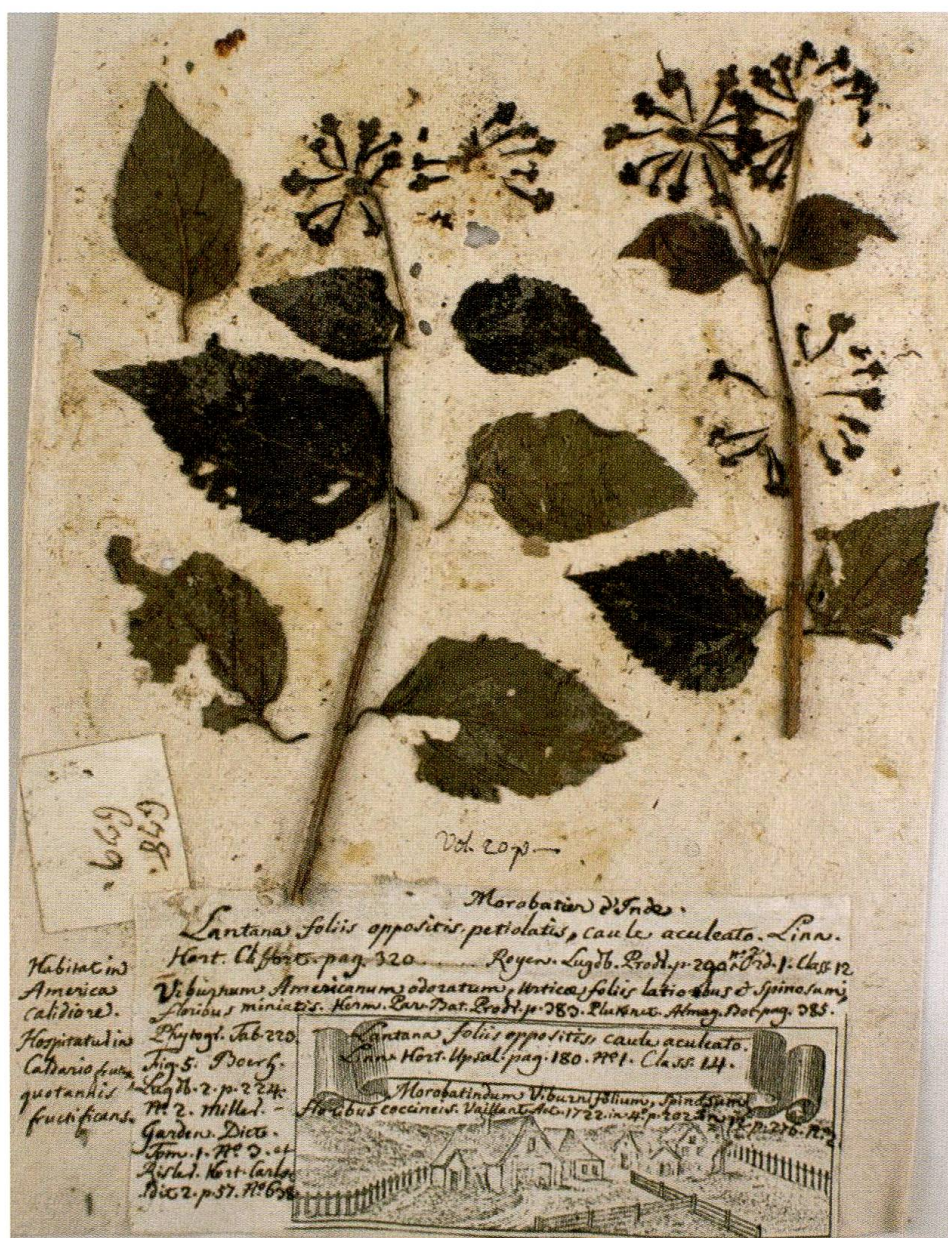 638.
639.
Vol. 20 p—
Morobatier d'Inde.
Lantana foliis oppositis petiolatis, caule aculeato. Linn.
Hort. Cliffort. pag. 320. . . . . . Royen. Lugdb. Prodr. p. 290. Ord. 1. Class. 12
Viburnum Americanum odoratum, Urticæ foliis latioribus & Spinosum,
floribus miniatis. Herm. Par. Bat. Prodr. p. 383. Pluknet. Almag. Bot. pag. 385.
Phytogr. Tab. 223.
Fig. 5. Boerh.
Lugdb. 2. p. 224.
Nº 2. Miller. –
Garden. Dict.
Tom. 1. Nº 3. et
Hort. Carls.
p. 57.
Lantana foliis oppositis caule aculeato.
Linn. Hort. Upsal. pag. 180. Nº 1. Class. 14.
Morobatindum Viburni folium, Spinosum
floribus coccineis. Vaillant. Act. 1722. in 4º p. 202.
p. 276. Nº 2
Habitat in
America
calidiore.
Hospitatur in
Caldario
quotannis
fructificans.